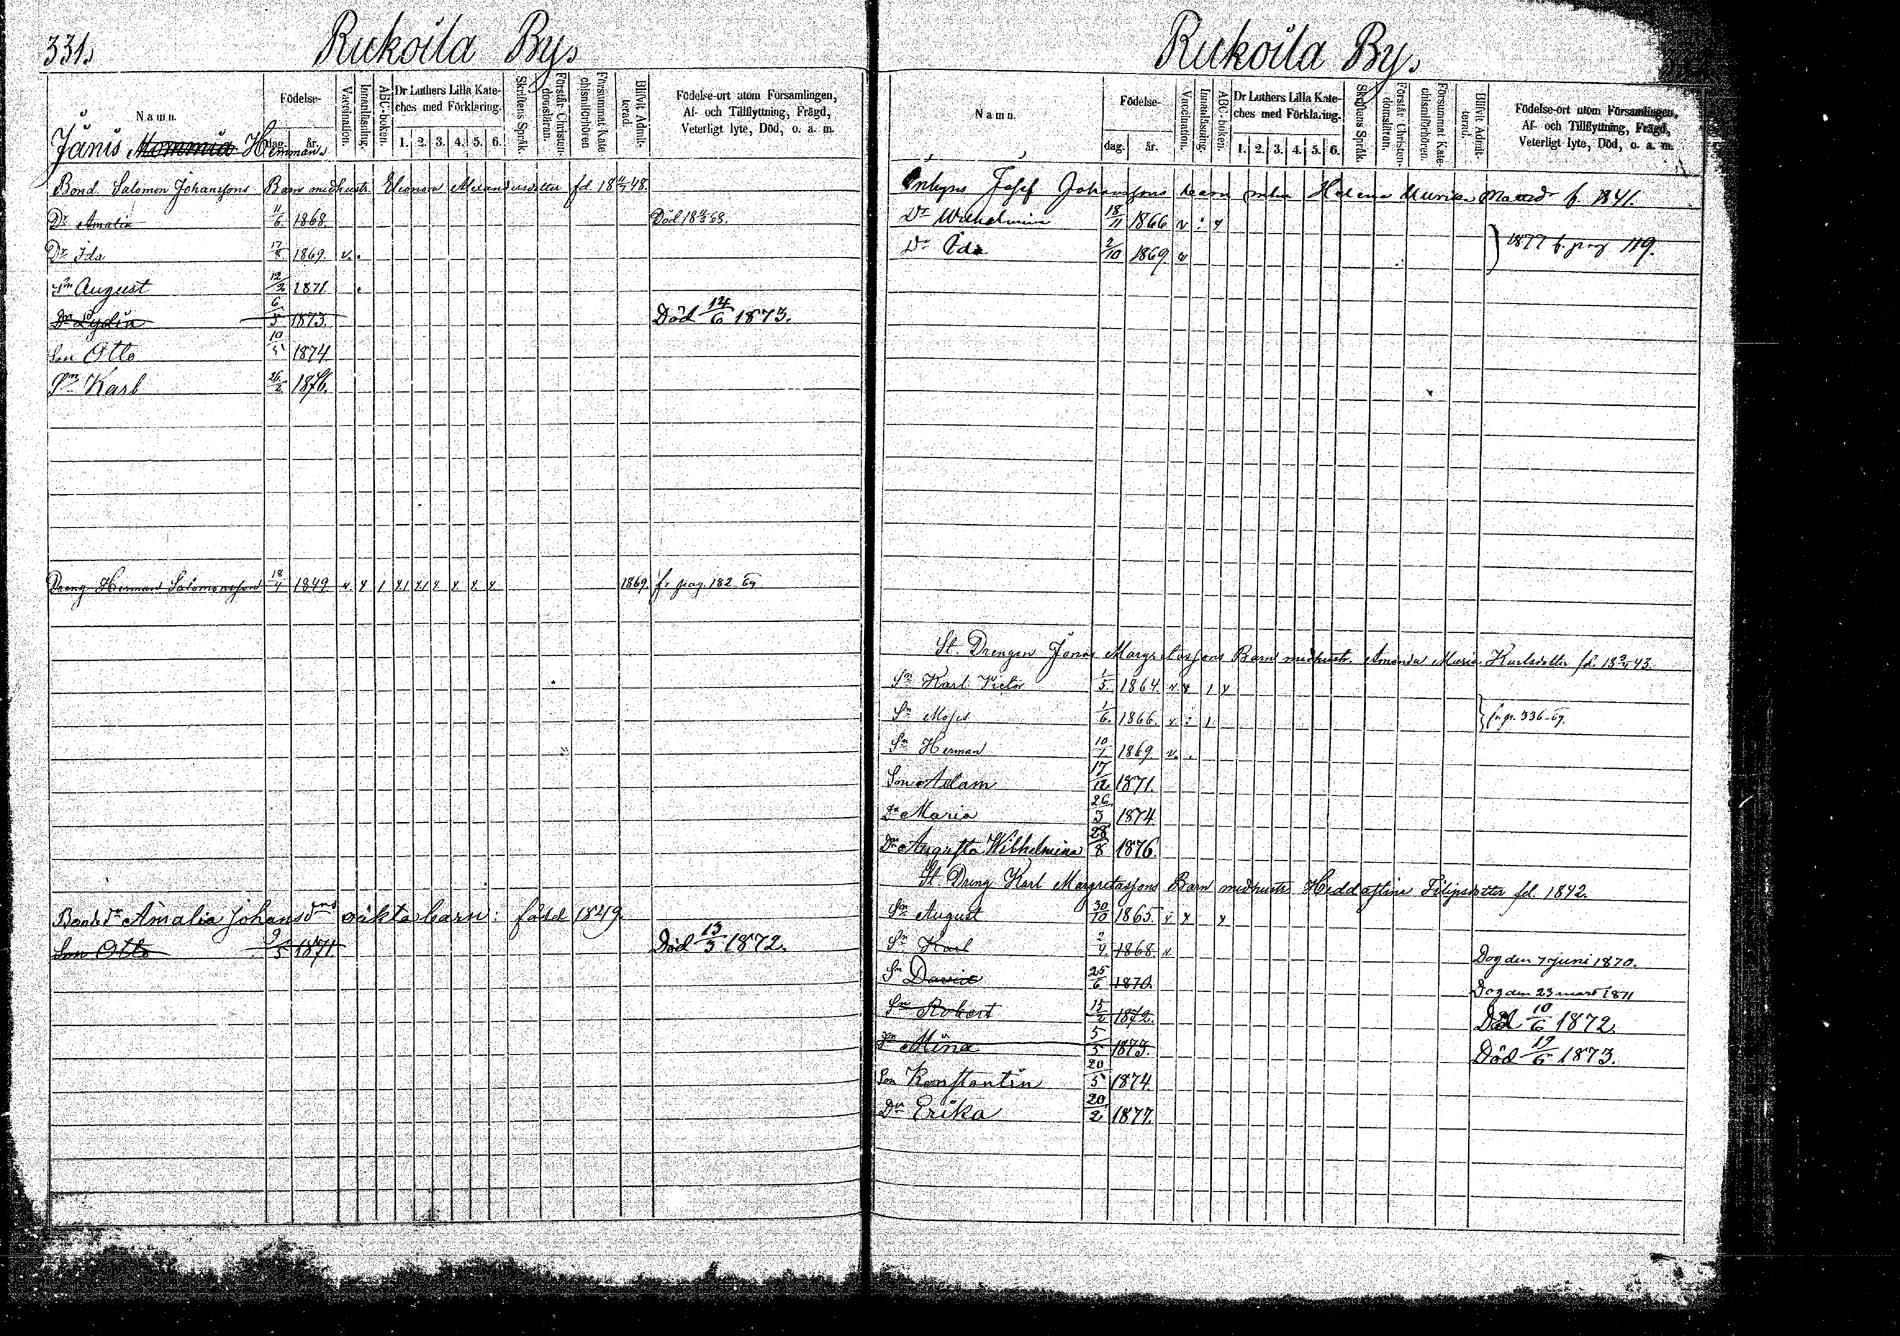 331.
Rukoila By.
Namn.
Födelse-
dag. år.
Vaccination.
Innanläsning.
ABC-boken.
Dr Luthers Lilla Kate-
ches med Förklaring.
1. 2. 3. 4. 5. 6.
Skriftens Språk.
Förstår Christen-
domsläran.
Försummat Kate-
chismiförhören
Blifvit Admit-
terad.
Födelse-ort utom Församlingen,
Af- och Tillflyttning, Frägd,
Veterligt lyte, Död, o. a. m.
Jänis Mommia Hemman.
Bond. Salomon Johanssons Barn med hustr. Eleonora Alexandersdotter fd 18 48.
Dr Amalia 11/6 1868. Död 18 68.
Dr Ida 17/8 1869. v.
Sn August 12/2 1871
Dr Lydia 6/5 1873. Död 14/6 1873.
Son Otto 10/5 1874
Sn Karl 26/2 1876.
Dreng Herman Salomonsson 18/4 1849 v. x 1 x1 x1 x x x x 1869. fr pag. 182 69
Bonds dr Amalia Johans drs oäkta barn: född 1849.
Son Otto 9/5 1871. Död 13/3 1872.
Rukoila By.
Namn.
Födelse-
dag. år.
Vaccination.
Innanläsning.
ABC-boken.
Dr Luthers Lilla Kate-
ches med Förklaring.
1. 2. 3. 4. 5. 6.
Skriftens Språk.
Förstår Christen-
domsläran.
Försummat Kate-
chismiförhören.
Blifvit Admit-
terad.
Födelse-ort utom Församlingen,
Af- och Tillflyttning, Frägd,
Veterligt lyte, Död, o. a. m.
Inhys Josef Johanssons barn Helena Maria Mattsdr f. 1841.
Dr Wilhelmina 18/11 1866 v : x
Dr Ida 2/10 1869. v } 1877 f. pag 119.
St. Drengen Jonas Margretassons Barn med hustr. Amanda Maria Karlsdotter fd. 18 43.
Sn Karl Victor 1/5 1864. v. x 1 x
Sn Moses 1/6 1866. v : 1 } fr p. 336-69.
Sn Herman 10/1 1869 v.
Son Adam 17/12 1871.
Dr Maria 26/3 1874
Dr Augusta Wilhelmina 28/8 1876.
St. Dreng Karl Margretassons Barn med hustr. Hedda Stina Filipsdotter fd. 1842.
Sn August 30/10 1865. v x x
Sn Karl 2/9 1868. v. Dog den 7 Juni 1870.
Sn David 25/6 1870. Dog den 23 mars 1871
Sn Robert 15/2 1872. Död 10/6 1872.
Dr Mina 5/5 1873. Död 19/6 1873.
Son Konstantin 20/5 1874
Dr Erika 20/2 1877.